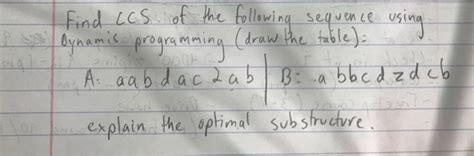 Find LCS of the following sequence using
Dynamic programming (draw the table):
A: aabdac2ab | B: abbcdzdcb
explain the optimal substructure.